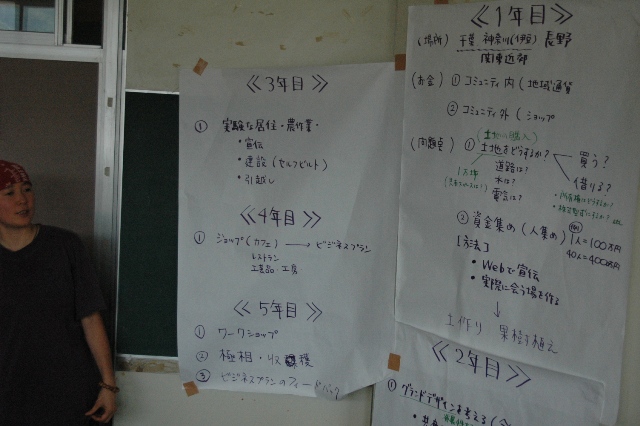 ≪1年目≫
(場所) 千葉 神奈川(伊豆) 長野
関東近郊
(お金) ① コミュニティ内(地域通貨
② コミュニティ外(ショップ
(土地の購入)
(問題点) ① 土地をどうするか?
買う?
借りる?
道路は?
水は?
電気は?
1人坪
② 資金集め(人集め)
1人=100万円
40人=4000万円
[方法]
• Webで宣伝
• 実際に会う場を作る
↓
土作り 果樹を植え
≪2年目≫
① グランドデザインを考える
≪3年目≫
① 実験な居住・農作業・
• 宣伝
• 建設(セルフビルト)
• 引越し
≪4年目≫
① ショップ(カフェ) → ビジネスプラン
レストラン
工芸品・工房
≪5年目≫
① ワークショップ
② 極相・収穫
③ ビジネスプランのフィードバック